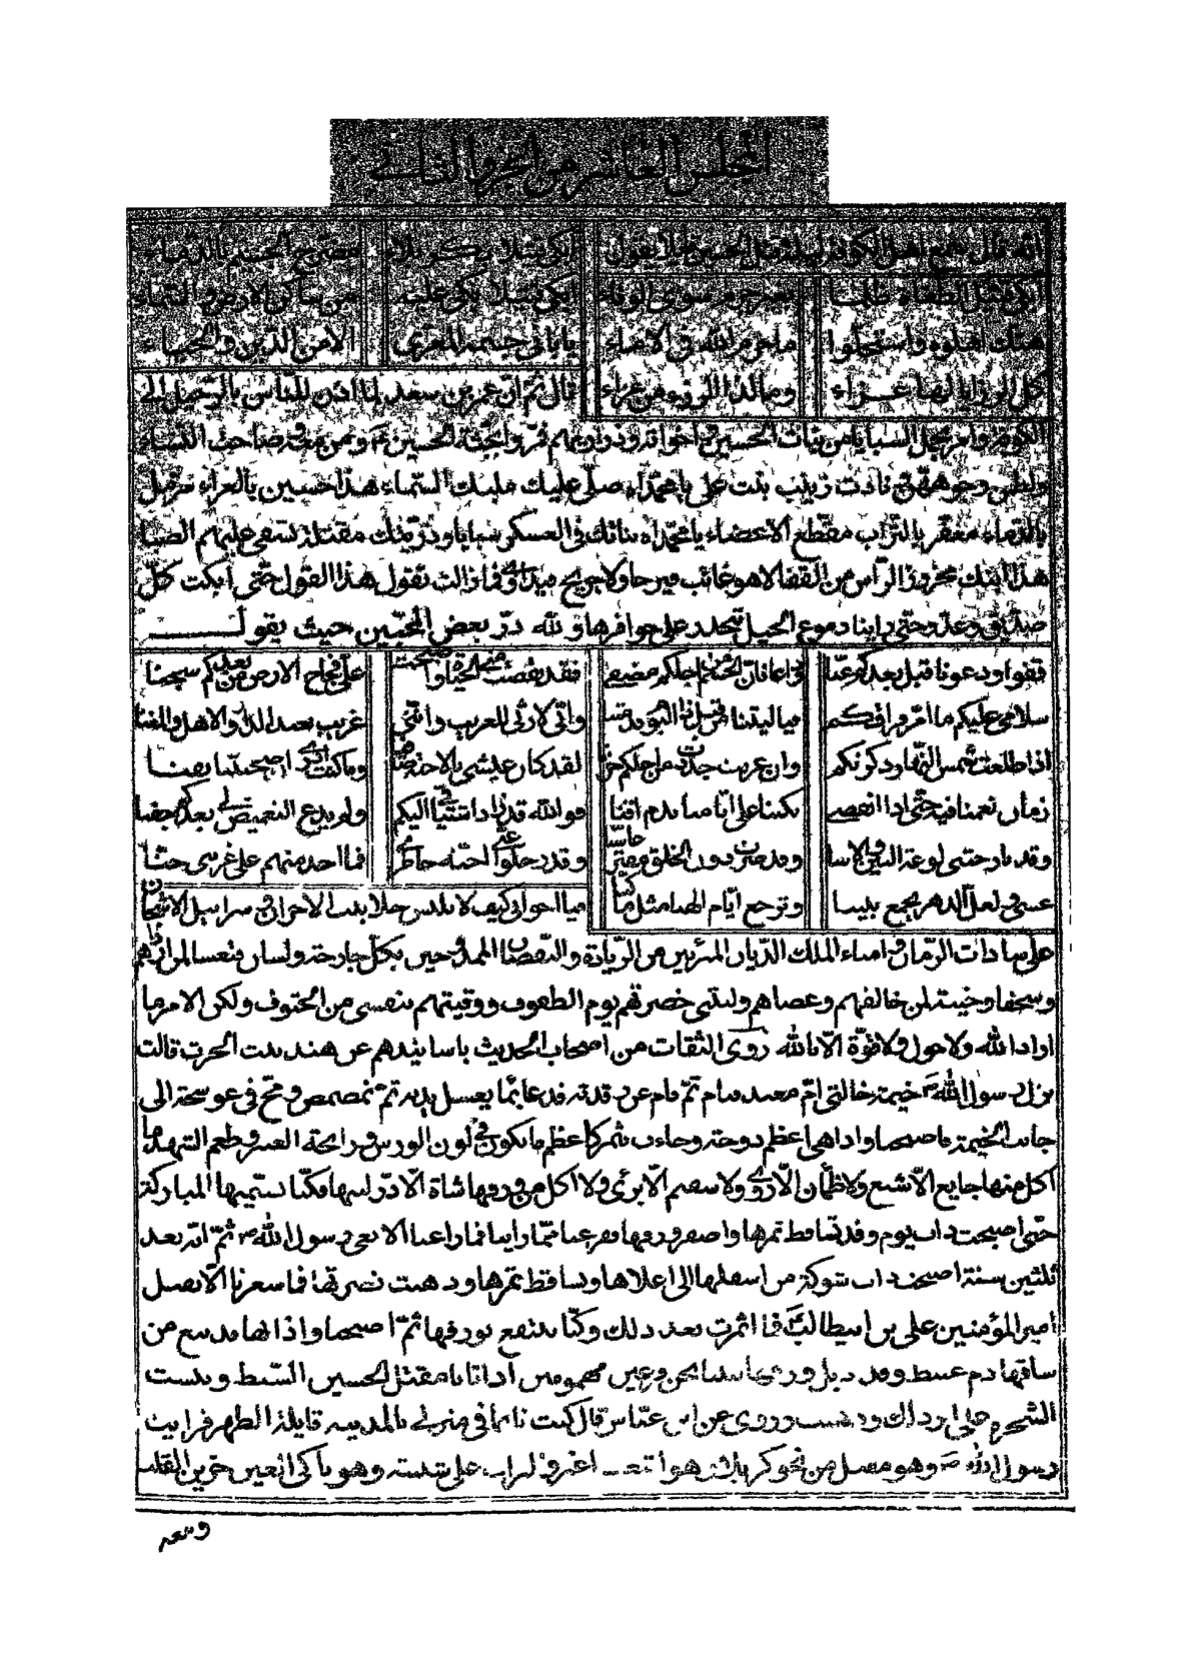 المجلس العاشر من الجزو الثاني
انه قال سمع اهل الكوفة ليلة قتل الحسين قائلا يقول ابكي قتيلا بكربلاء مضرج الجسم بالدماء
ابكي قتيل الطغاة ظلما بغير جرم سوى الوفاء ابكي قتيلا بكى عليه من ساكن الارض والسماء
هتك اهلوه واستحلوا ما حرم الله في الاماء يا بابي جسمه المعرى الا من الدين والحياء
كل الرزايا لها عزاء وما لذا الرزء من عزاء قال ثم ان عمر بن سعد لما اذن للناس بالرحيل الى
الكوفة وامر بحمل السبايا من بنات الحسين واخواته وذراريهم فمروا بجثة الحسين ومن معه صاحت النساء
ولطمن وجوههن نادت زينب بنت علي يا محمداه صلى عليك مليك السماء هذا حسين بالعراء مرمل
بالدماء معفر بالتراب مقطع الاعضاء يا محمداه بناتك في العسكر سبايا وذريتك مقتلة تسفي عليهم الصبا
هذا ابنك محزوز الراس من القفا لا هو غائب فيرجا ولا جريح فيداوى فما زالت تقول هذا القول حتى ابكت كل
صديق وعدو حتى راينا دموع الخيل تنحدر على حوافرها ولله در بعض المحبين حيث يقول
قفوا ودعونا قبل بعدكم عنا وداعا فان الجسم من اجلكم مضنى فقد نقصت مني الحياة واصبحت علي فجاج الارض من بعدكم سجنا
سلامي عليكم ما امر فراقكم فيا ليتنا من قبل ذا اليوم قد متنا واني لارثي للغريب وانني غريب بعيد الدار والاهل والمغنا
اذا طلعت شمس النهار ذكرتكم وان غربت جددت من اجلكم حزنا لقد كان عيشي بالاحبة صافيا وما كنت ادري ان صحبتنا تفنا
زمان نعمنا فيه حتى اذا انقضى بكينا على ايامنا بدم اقنا فوالله قد زاد اشتياقي اليكم ولم يدع التغميض لي بعدكم جفنا
وقد بارحتني لوعة البين والاسا وقد صرت دون الخلق مقترعا سنا وقد رحلوا عني احبة خاطري فما احد منهم على غربتي حنا
عسى ولعل الدهر يجمع بيننا وترجع ايام الهنا مثل ما كنا فيا اخواني كيف لا نلبس جلابيب الاحزان وسرابيل الاشجان
على سادات الزمان وامناء الملك الديان المبرئين من الزيادة والنقصان الممدوحين بكل جارحة ولسان فتعسا لمن اذاهم
وسحقا وخيبة لمن خالفهم وعصاهم وليتني حضرتهم يوم الطفوف ووقيتهم بنفسي من الحتوف ولكن الامر ما
اراد الله ولا حول ولا قوة الا بالله روى الثقات من اصحاب الحديث باسانيدهم عن هند بنت الحرث قالت
نزل رسول الله ص خيمة خالتي ام معبد فنام ثم قام عن رقدته فدعا بماء فغسل يديه ثم تمضمض ومج في عوسجة الى
جانب الخيمة فاصبحنا واذا هي اعظم دوحة وجاءت بثمر كاعظم ما يكون في لون الورس ورائحة العنبر وطعم الشهد ما
اكل منها جايع الا شبع ولا ظمان الا روي ولا سقيم الا برئ ولا اكل من ورقها شاة الا در لبنها فكنا نسميها المباركة
حتى اصبحت ذات يوم وقد تساقط ثمرها واصفر ورقها ففزعنا مما راينا فما راعنا الا نعي رسول الله ص ثم انه بعد
ثلثين سنة اصبحت ذات شوكة من اسفلها الى اعلاها وتساقط ثمرها وذهبت نضرتها فما شعرنا الا بقتل
امير المؤمنين علي بن ابيطالب فما اثمرت بعد ذلك وكنا ننتفع بورقها ثم اصبحنا واذا بها قد نبع من
ساقها دم عبيط وقد ذبل ورقها فبينا نحن فزعين مهمومين اذ اتانا مقتل الحسين السبط ويبست
الشجرة على اثر ذلك وذهبت وروى عن ابن عباس قال كنت نائما في منزلي بالمدينة قايلة الظهر فرايت
رسول الله ص وهو مقبل من نحو كربلا وهو اشعث اغبر والتراب على شيبته وهو باكي العين حزين القلب
ومعه